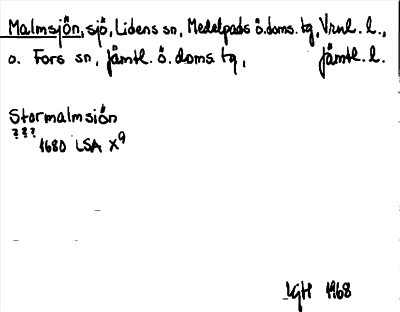 Malmsjön, sjö, Lidens sn, Medelpads ö.doms. tg, Vrnl. l.,
o. Fors sn, Jämtl. ö. doms tg, Jämtl. l.
Stormalmsiön
??? 1680 LSA X9
LgH 1968